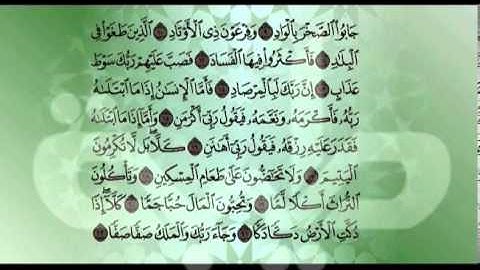 جَابُوا۟ ٱلصَّخْرَ بِٱلْوَادِ ۝٩ وَفِرْعَوْنَ ذِى ٱلْأَوْتَادِ ۝١٠ ٱلَّذِينَ طَغَوْا۟ فِى
ٱلْبِلَٰدِ ۝١١ فَأَكْثَرُوا۟ فِيهَا ٱلْفَسَادَ ۝١٢ فَصَبَّ عَلَيْهِمْ رَبُّكَ سَوْطَ
عَذَابٍ ۝١٣ إِنَّ رَبَّكَ لَبِٱلْمِرْصَادِ ۝١٤ فَأَمَّا ٱلْإِنسَٰنُ إِذَا مَا ٱبْتَلَىٰهُ
رَبُّهُۥ فَأَكْرَمَهُۥ وَنَعَّمَهُۥ فَيَقُولُ رَبِّىٓ أَكْرَمَنِ ۝١٥ وَأَمَّآ إِذَا مَا ٱبْتَلَىٰهُ
فَقَدَرَ عَلَيْهِ رِزْقَهُۥ فَيَقُولُ رَبِّىٓ أَهَٰنَنِ ۝١٦ كَلَّا بَل لَّا تُكْرِمُونَ
ٱلْيَتِيمَ ۝١٧ وَلَا تَحَٰٓضُّونَ عَلَىٰ طَعَامِ ٱلْمِسْكِينِ ۝١٨ وَتَأْكُلُونَ
ٱلتُّرَاثَ أَكْلًا لَّمًّا ۝١٩ وَتُحِبُّونَ ٱلْمَالَ حُبًّا جَمًّا ۝٢٠ كَلَّآ إِذَا
دُكَّتِ ٱلْأَرْضُ دَكًّا دَكًّا ۝٢١ وَجَآءَ رَبُّكَ وَٱلْمَلَكُ صَفًّا صَفًّا ۝٢٢